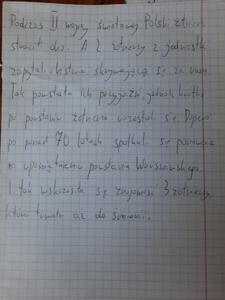 Podczas II wojny światowej Polski żołnierz
stracił dw. A 2 żołnierzy z jednostki
się za nim.
Tak powstała ich przyjaźń, jednak krótko
po powstaniu żołnierze rozestali się. Dopiero
po ponad 70 latach spotkali się ponownie
na upamiętnieniu powstania Warszawskiego.
I tak wskrzesiła się znajomość 3 żołnierzy
która trwała aż do śmierci.